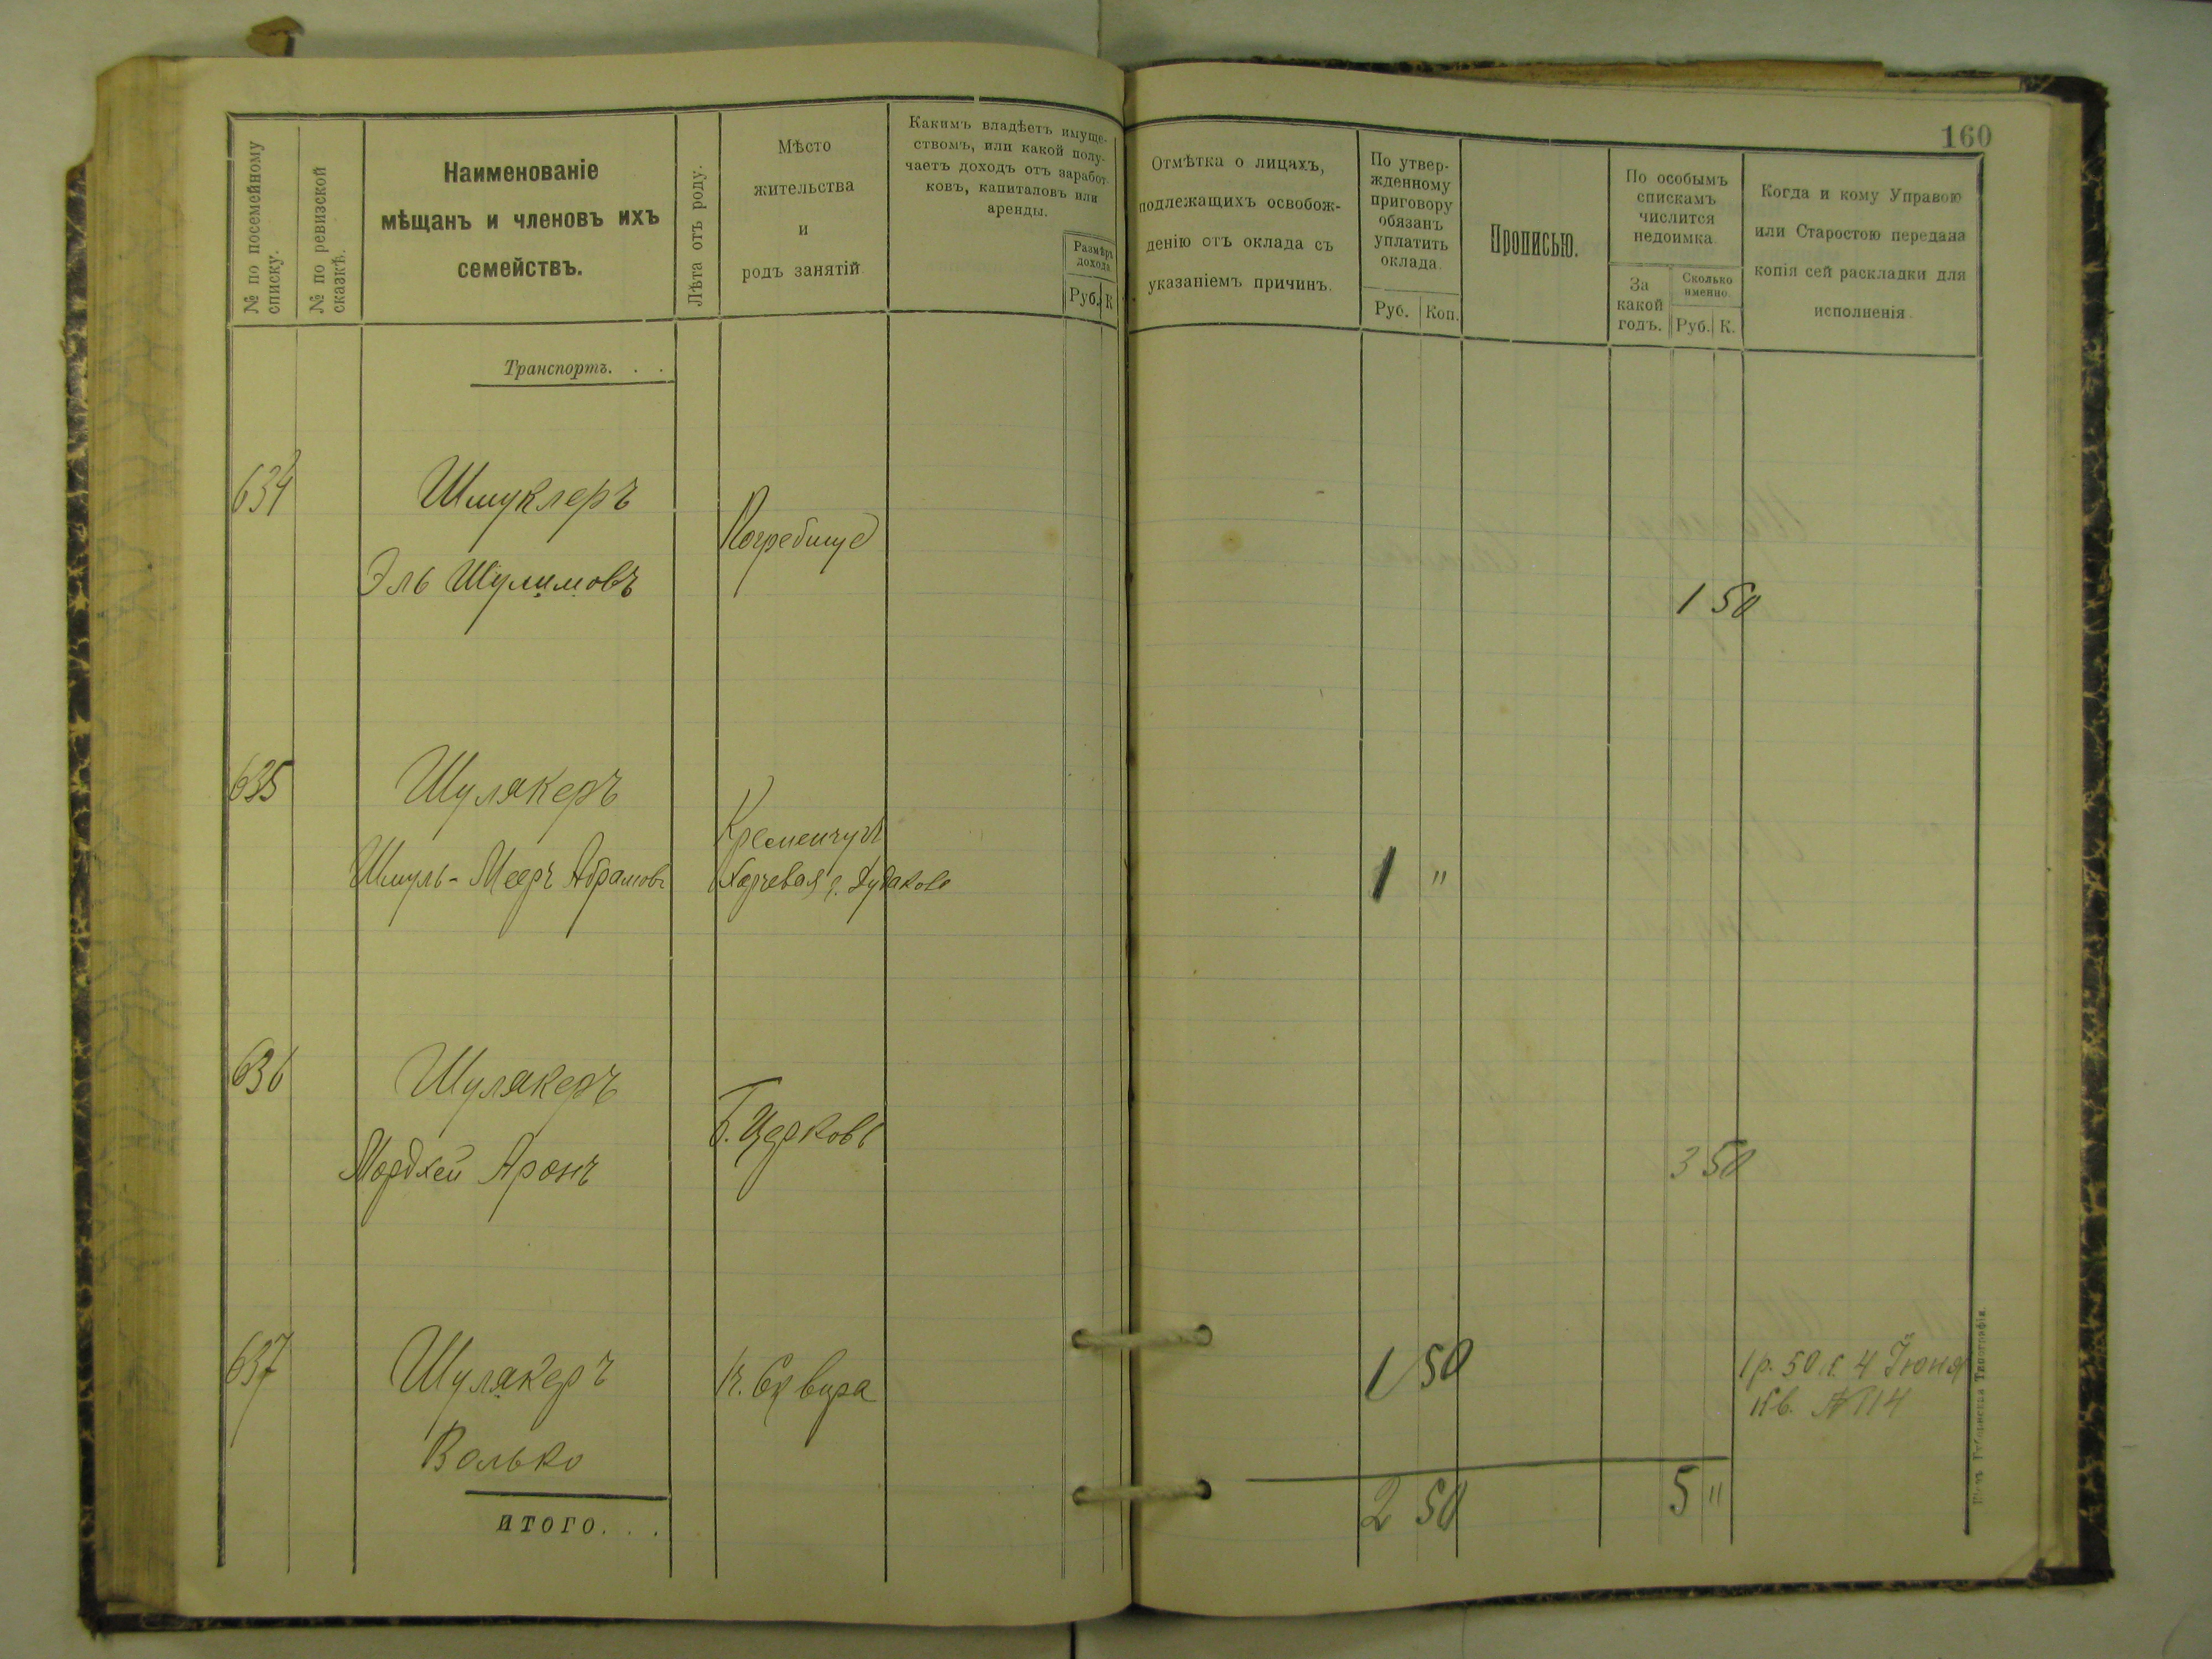 160
№ по посемейному
списку.
№ по ревизской
сказкѣ.
Наименованіе
мѣщанъ и членовъ ихъ
семействъ.
Лѣта отъ роду.
Мѣсто
жительства
и
родъ занятій.
Какимъ владѣетъ имуще-
ствомъ, или какой полу-
чаетъ доходъ отъ заработ-
ковъ, капиталовъ или
аренды.
Размѣръ
дохода.
Руб. К
Отмѣтка о лицахъ,
подлежащихъ освобож-
денію отъ оклада съ
указаніемъ причинъ.
По утвер-
жденному
приговору
обязанъ
уплатить
оклада.
Руб. Коп.
Прописью.
По особымъ
спискамъ
числится
недоимка.
За
какой
годъ.
Сколько
именно.
Руб. К.
Когда и кому Управою
или Старостою передана
копія сей раскладки для
исполненія.
Транспортъ. . .
634 Шмуклеръ
Погребище
Эль Шулимовъ
1 50
635 Шулякеръ
Кременчугъ
Шмуль-Мееръ Абрамовъ
1 "
636 Шулякеръ
Б. Церковь
Мордхей Аронъ
3 50
637 Шулякеръ
Сквира
1 50
1 р. 50 к. 4 Іюня
Кв. № 114
Волько
итого. . .
2 50
5 "